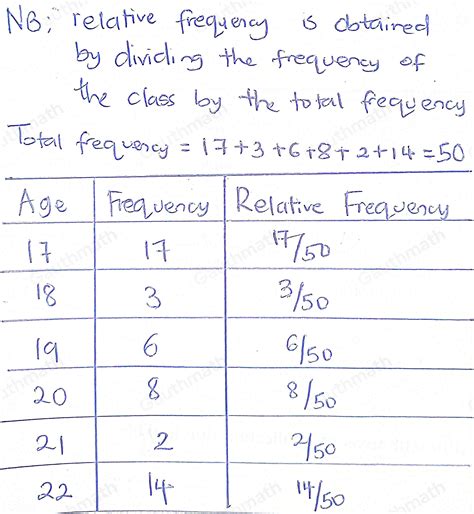 NB; relative frequency is obtained
by dividing the frequency of
the class by the total frequency
Total frequency = 17+3+6+8+2+14=50
Age Frequency Relative Frequency
17 17 17/50
18 3 3/50
19 6 6/50
20 8 8/50
21 2 2/50
22 14 14/50